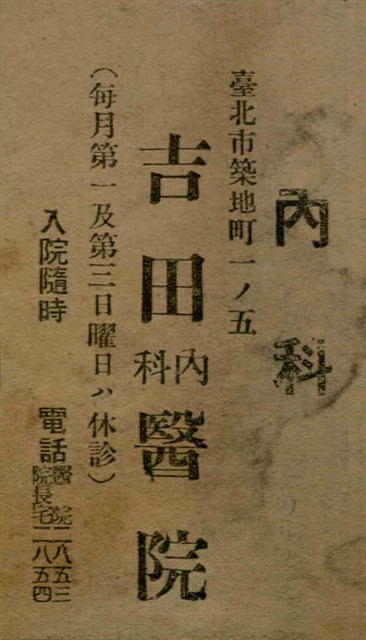 內科
臺北市築地町一ノ五
吉田內科醫院
(每月第一及第三日曜日ハ休診)
入院隨時
電話
醫院二八五三
院長宅二八五四